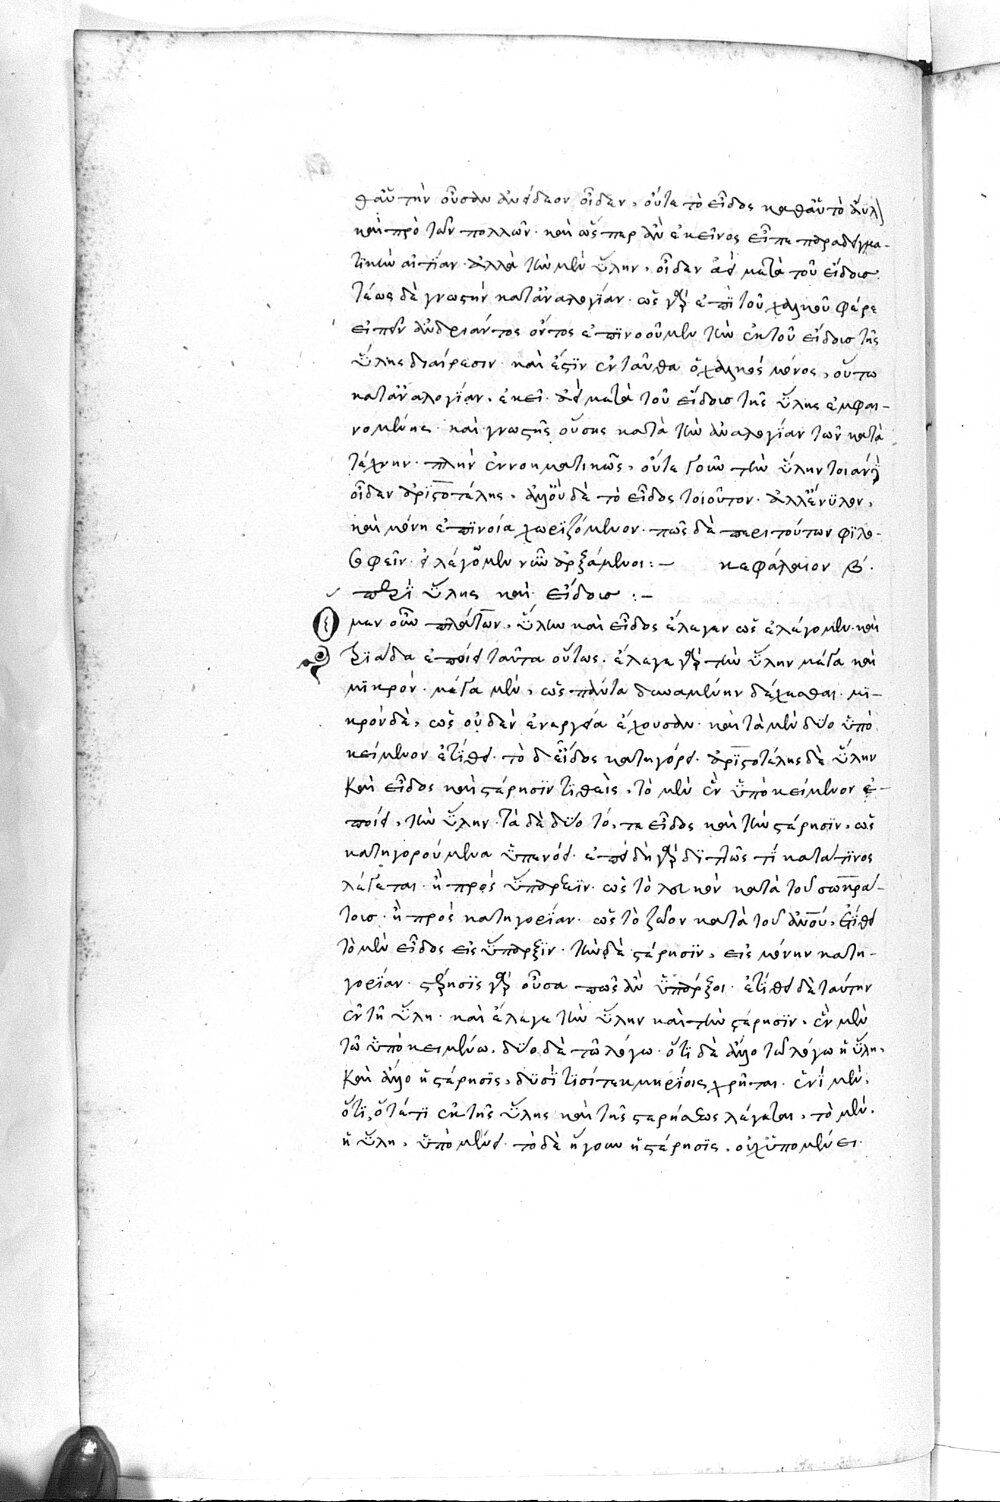 θαὑτὴν οὖσαν ἀνείδεον οἶδεν, οὔτε τὸ εἶδος καθαὑτὸ ἄϋλ
καὶ πρὸ τῶν πολλῶν· καὶ ὥσπερ ἂν ἐκεῖνος εἴπε παραδειγμα-
τικὴν αἰτίαν· ἀλλὰ τὴν μὲν ὕλην, οἶδεν ἀεὶ μετὰ τοῦ εἴδους·
τέως δὲ γνωστὴν κατ' ἀναλογίαν· ὡς γὰρ ἐπὶ τοῦ χαλκοῦ φέρε
εἰπεῖν ἀνδριάντος ὄντος ἐπινοοῦμεν τὴν ἐκ τοῦ εἴδους τῆς
ὕλης διαίρεσιν· καὶ ἔστιν ἐνταῦθα ὁ χαλκὸς μόνος, οὕτω
κατ' ἀναλογίαν, ἐκεῖ· ἀεὶ μετὰ τοῦ εἴδους τῆς ὕλης ἐμφαι-
νομένης· καὶ γνωστῆς οὔσης κατὰ τὴν ἀναλογίαν τῶν κατὰ
τέχνην· πλὴν ἐννοηματικῶς, οὔτε γοῦν τὴν ὕλην τοιαύτην
οἶδεν ἀριστοτέλης, ἀλλ' οὐδὲ τὸ εἶδος τοιοῦτον· ἀλλ' ἔνυλον,
καὶ μόνη ἐπινοία χωριζόμενον· πῶς δὲ περὶ τούτων φιλο-
σοφεῖν· ἐλέγομεν νῦν ἀρξάμενοι:- κεφάλαιον β'.
περὶ ὕλης καὶ εἴδους :-
μεν οὖν πλάτων, ὕλην καὶ εἶδος ἔλεγεν ὡς ἐλέγομεν· καὶ
τριάδα ἐποίει ταῦτα οὕτως. ἔλεγε γὰρ τὴν ὕλην μέγα καὶ
μικρόν· μέγα μὲν, ὡς πάντα δυναμένην δέχεσθαι· μι-
κρὸν δὲ, ὡς οὐδὲν ἐνεργείᾳ ἔχουσαν· καὶ τὰ μὲν δύο ὑπο
κείμενον ἐτίθει· τὸ δ' εἶδος κατηγορεῖ· ἀριστοτέλης δὲ ὕλην
καὶ εἶδος καὶ στέρησιν τιθεὶς, τὸ μὲν ἓν ὑποκείμενον ἐ-
ποίει, τὴν ὕλην· τὰ δὲ δύο τό, τε εἶδος καὶ τὴν στέρησιν, ὡς
κατηγορούμενα ὑπενόει· ἐπειδὴ γὰρ διττῶς τὶ κατά τινος
λέγεται· ἢ πρὸς ὕπαρξιν· ὡς τὸ λευκὸν κατὰ τοῦ σωκρά-
τους· ἢ πρὸς κατηγορίαν· ὡς τὸ ζῶον κατὰ τοῦ ἀνου, ἐτίθει
τὸ μὲν εἶδος εἰς ὕπαρξιν· τὴν δὲ στέρησιν, εἰς μόνην κατη-
γορίαν· στέρησις γὰρ οὖσα πῶς ἂν ὑπάρξοι· ἐτίθει δὲ ταύτην
ἐν τῇ ὕλῃ· καὶ ἔλεγε τὴν ὕλην καὶ τὴν στέρησιν, ἓν μὲν
τῷ ὑποκειμένῳ, δύο δὲ τῷ λόγῳ· ὅτι δὲ ἄλλο τῷ λόγῳ ἡ ὕλη,
καὶ ἄλλο ἡ στέρησις, δυσί τισι τεκμηρίοις χρῆται· ἑνὶ μὲν,
ὅτι, ὅτε τὶ ἐκ τῆς ὕλης καὶ τῆς στερήσεως λέγεται, τὸ μὲν.
ἡ ὕλη, ὑπομένει· τὸ δὲ ἤγουν ἡ στέρησις, οὐχ ὑπομένει·